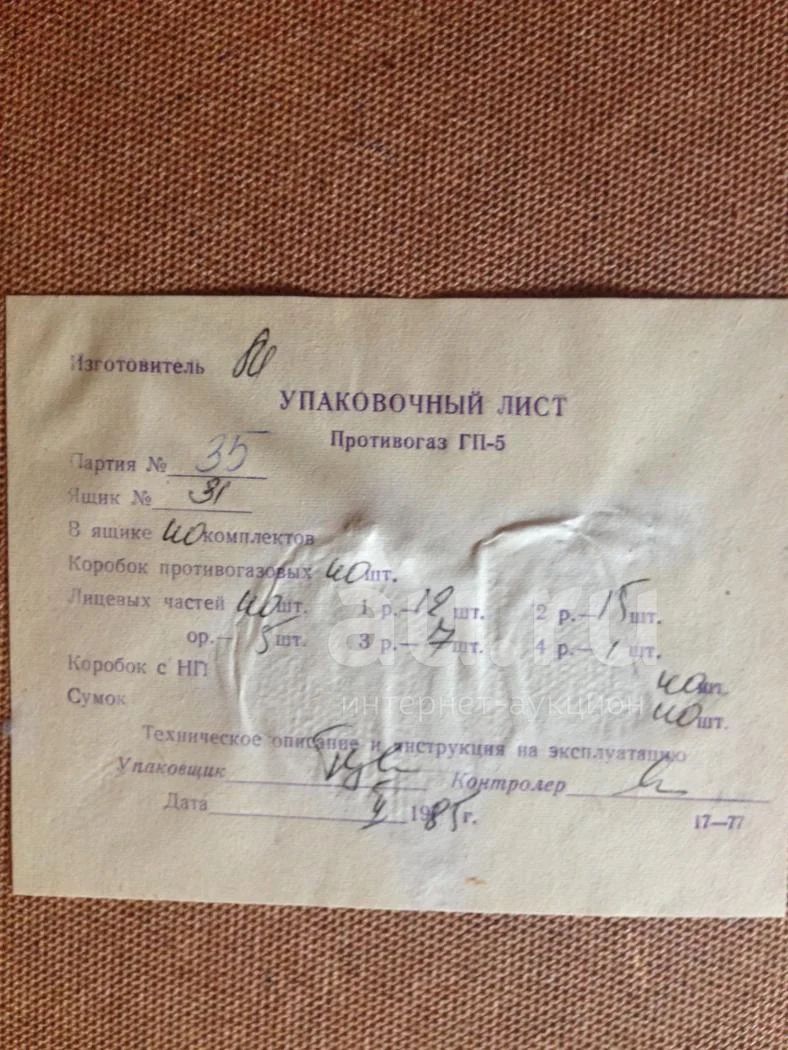 Изготовитель
УПАКОВОЧНЫЙ ЛИСТ
Противогаз ГП-5
Партия № 35
Ящик № 31
В ящике 40 комплектов
Коробок противогазовых 40 шт.
Лицевых частей 40 шт. 1 р.—12 шт. 2 р.—15 шт.
ор.— 5 шт. 3 р.— 7 шт. 4 р.— 1 шт.
Коробок с НП 40 шт.
Сумок 40 шт.
au.ru
интернет-аукцион
Техническое описание и инструкция на эксплуатацию
Упаковщик Контролер
Дата V 1985 г. 17—77